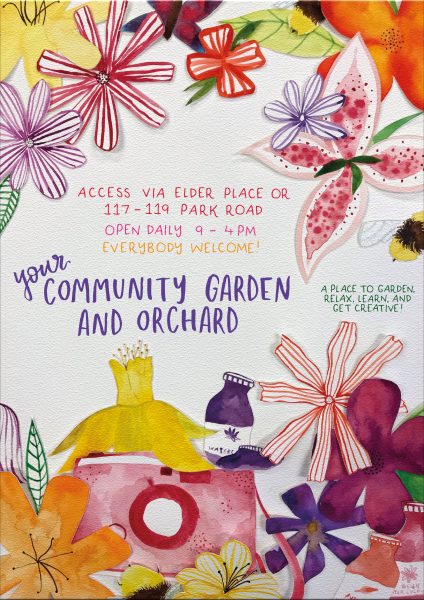 ACCESS VIA ELDER PLACE OR
117-119 PARK ROAD
OPEN DAILY 9 - 4PM
EVERYBODY WELCOME!
your
COMMUNITY GARDEN
AND ORCHARD
A PLACE TO GARDEN,
RELAX, LEARN, AND
GET CREATIVE!